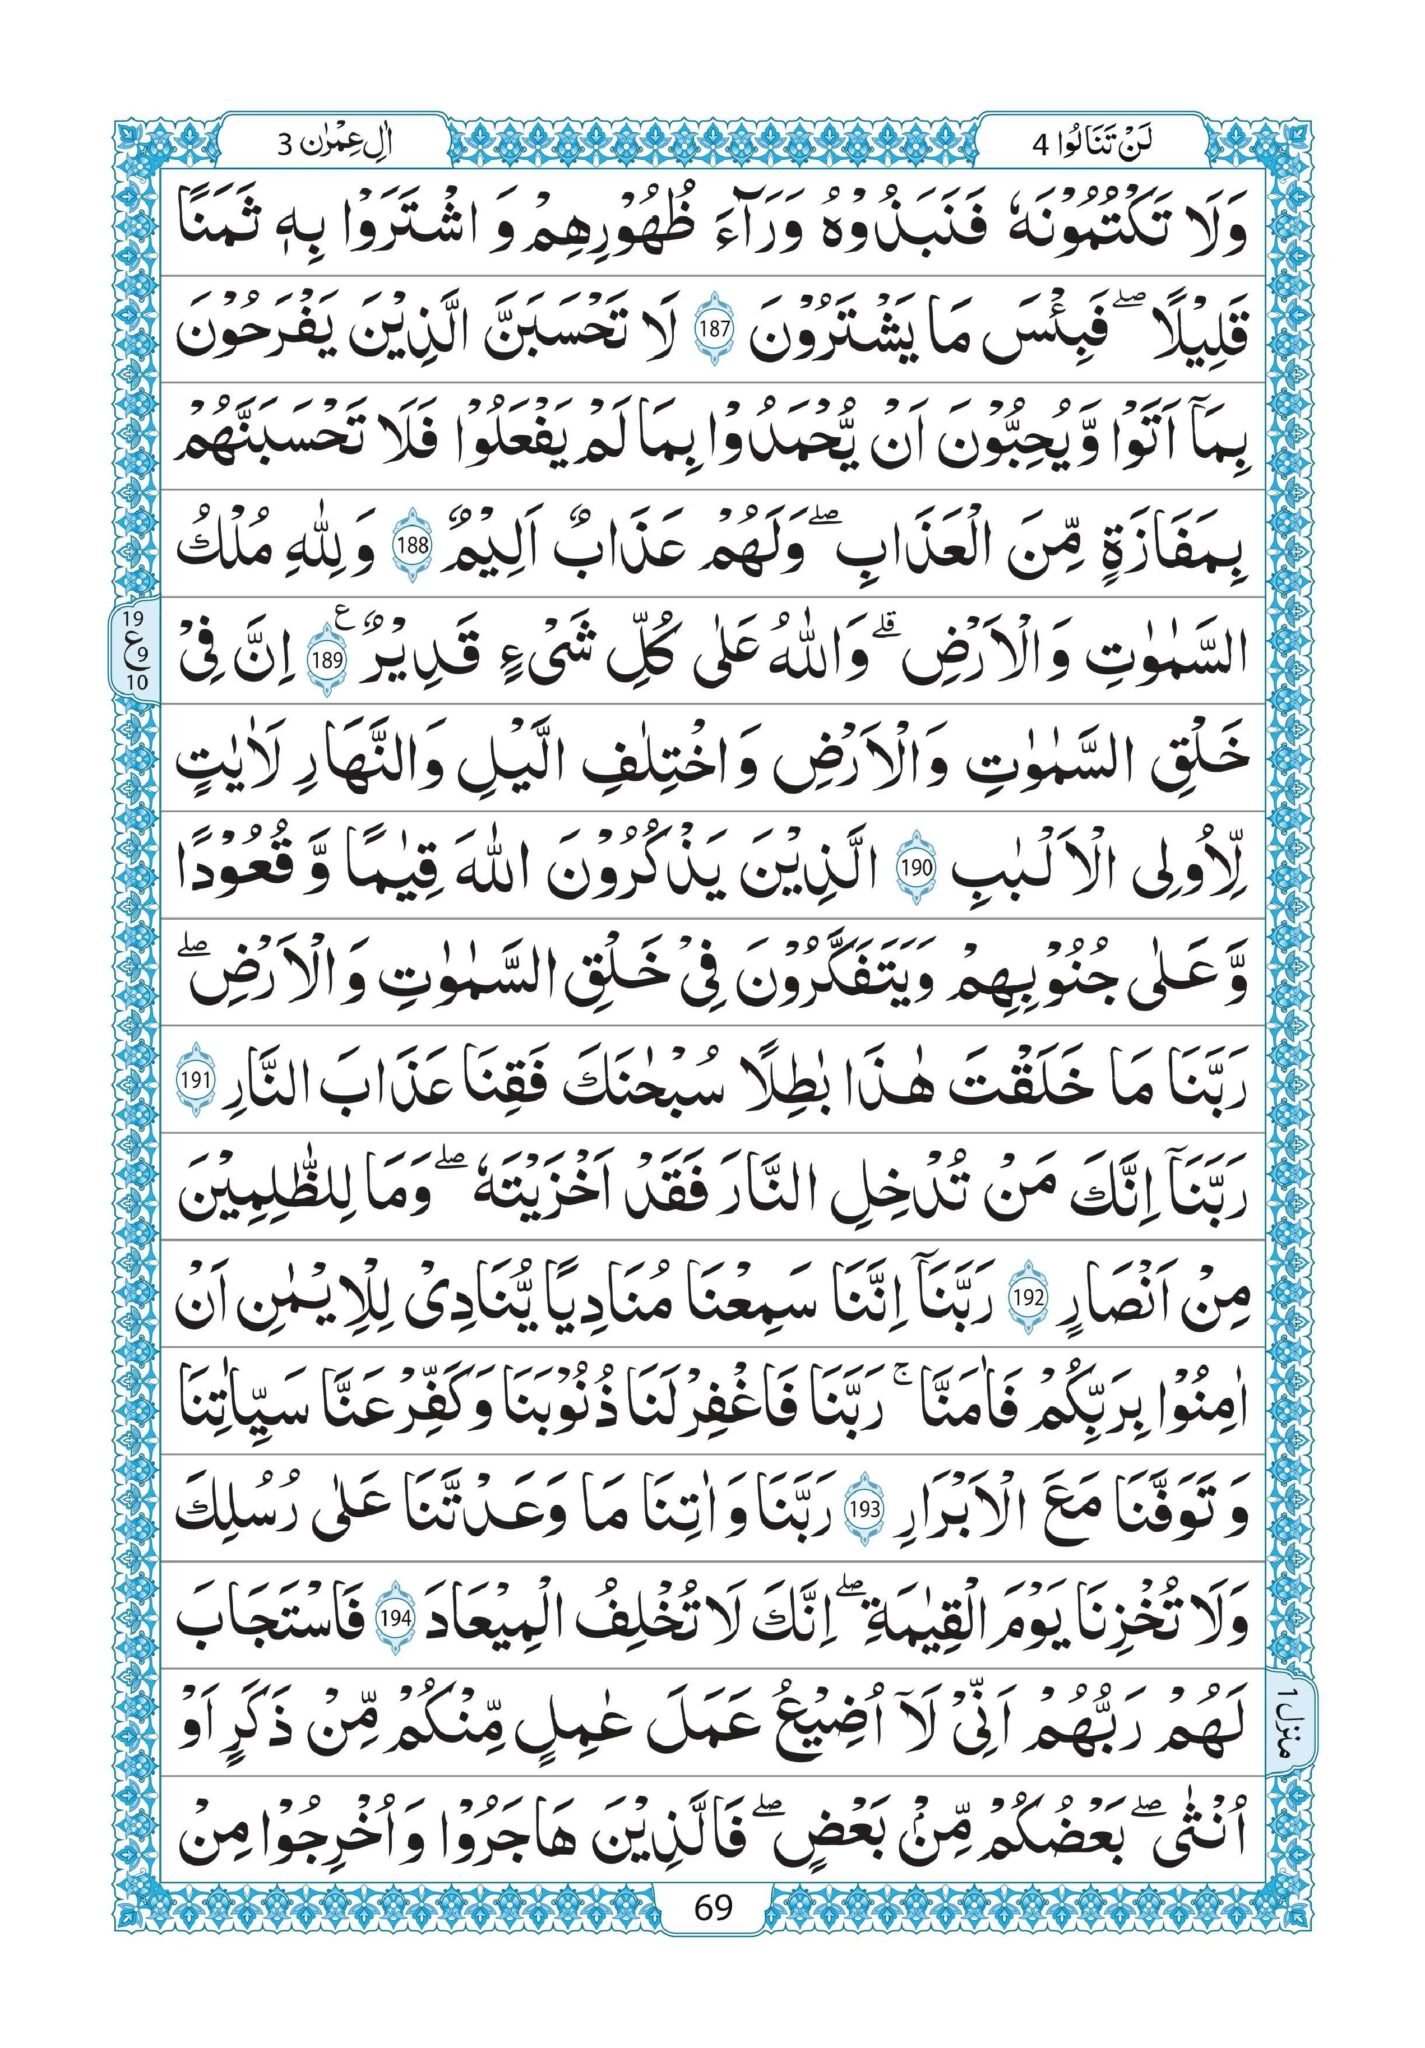 لَنْ تَنَالُوا 4
اٰلِ عِمْرٰن 3
وَلَا تَكْتُمُوْنَهٗ فَنَبَذُوْهُ وَرَآءَ ظُهُوْرِهِمْ وَ اشْتَرَوْا بِهٖ ثَمَنًا
قَلِيْلًا ۖ فَبِئْسَ مَا يَشْتَرُوْنَ 187 لَا تَحْسَبَنَّ الَّذِيْنَ يَفْرَحُوْنَ
بِمَآ اَتَوْا وَّيُحِبُّوْنَ اَنْ يُّحْمَدُوْا بِمَا لَمْ يَفْعَلُوْا فَلَا تَحْسَبَنَّهُمْ
بِمَفَازَةٍ مِّنَ الْعَذَابِ ۖ وَلَهُمْ عَذَابٌ اَلِيْمٌ 188 وَلِلّٰهِ مُلْكُ
السَّمٰوٰتِ وَالْاَرْضِ ۗ وَاللّٰهُ عَلٰى كُلِّ شَىْءٍ قَدِيْرٌ ع 189 اِنَّ فِىْ
19
ع 9
10
خَلْقِ السَّمٰوٰتِ وَالْاَرْضِ وَاخْتِلٰفِ الَّيْلِ وَالنَّهَارِ لَاٰيٰتٍ
لِّاُولِى الْاَلْبٰبِ 190 الَّذِيْنَ يَذْكُرُوْنَ اللّٰهَ قِيٰمًا وَّ قُعُوْدًا
وَّ عَلٰى جُنُوْبِهِمْ وَيَتَفَكَّرُوْنَ فِىْ خَلْقِ السَّمٰوٰتِ وَالْاَرْضِ ۖ
رَبَّنَا مَا خَلَقْتَ هٰذَا بٰطِلًا سُبْحٰنَكَ فَقِنَا عَذَابَ النَّارِ 191
رَبَّنَآ اِنَّكَ مَنْ تُدْخِلِ النَّارَ فَقَدْ اَخْزَيْتَهٗ ۖ وَمَا لِلظّٰلِمِيْنَ
مِنْ اَنْصَارٍ 192 رَبَّنَآ اِنَّنَا سَمِعْنَا مُنَادِيًا يُّنَادِىْ لِلْاِيْمٰنِ اَنْ
اٰمِنُوْا بِرَبِّكُمْ فَاٰمَنَّا ۚ رَبَّنَا فَاغْفِرْ لَنَا ذُنُوْبَنَا وَكَفِّرْ عَنَّا سَيِّاٰتِنَا
وَ تَوَفَّنَا مَعَ الْاَبْرَارِ 193 رَبَّنَا وَاٰتِنَا مَا وَعَدْتَّنَا عَلٰى رُسُلِكَ
وَلَا تُخْزِنَا يَوْمَ الْقِيٰمَةِ ۖ اِنَّكَ لَا تُخْلِفُ الْمِيْعَادَ 194 فَاسْتَجَابَ
لَهُمْ رَبُّهُمْ اَنِّىْ لَآ اُضِيْعُ عَمَلَ عٰمِلٍ مِّنْكُمْ مِّنْ ذَكَرٍ اَوْ
منزل 1
اُنْثٰى ۖ بَعْضُكُمْ مِّنْۢ بَعْضٍ ۖ فَالَّذِيْنَ هَاجَرُوْا وَاُخْرِجُوْا مِنْ
69